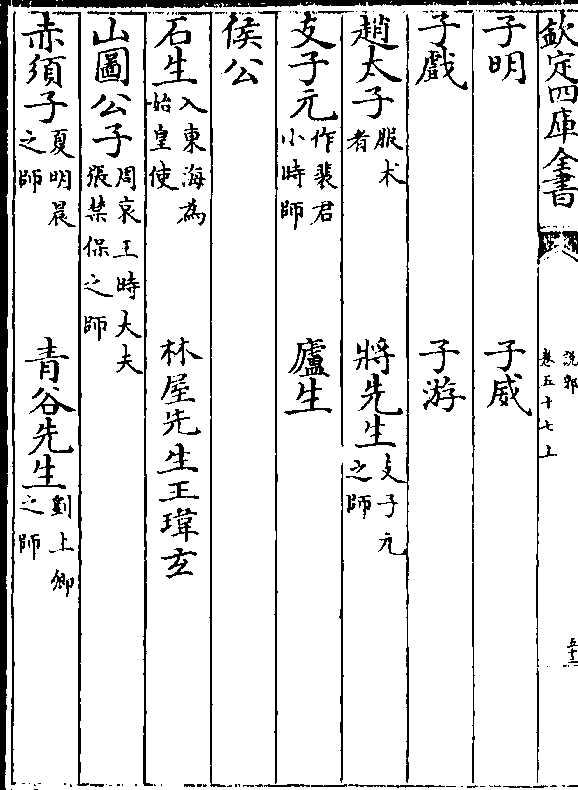 欽定四庫全書
說郛
卷五十七上
五十二
子明 子威
子戲 子游
趙太子服术者 將先生支子元之師
支子元作裴君小時師 廬生
侯公
石生入東海為始皇使 林屋先生王瑋玄
山圖公子周哀王時大夫張禁保之師
赤須子夏明晨之師 青谷先生劉上卿之師